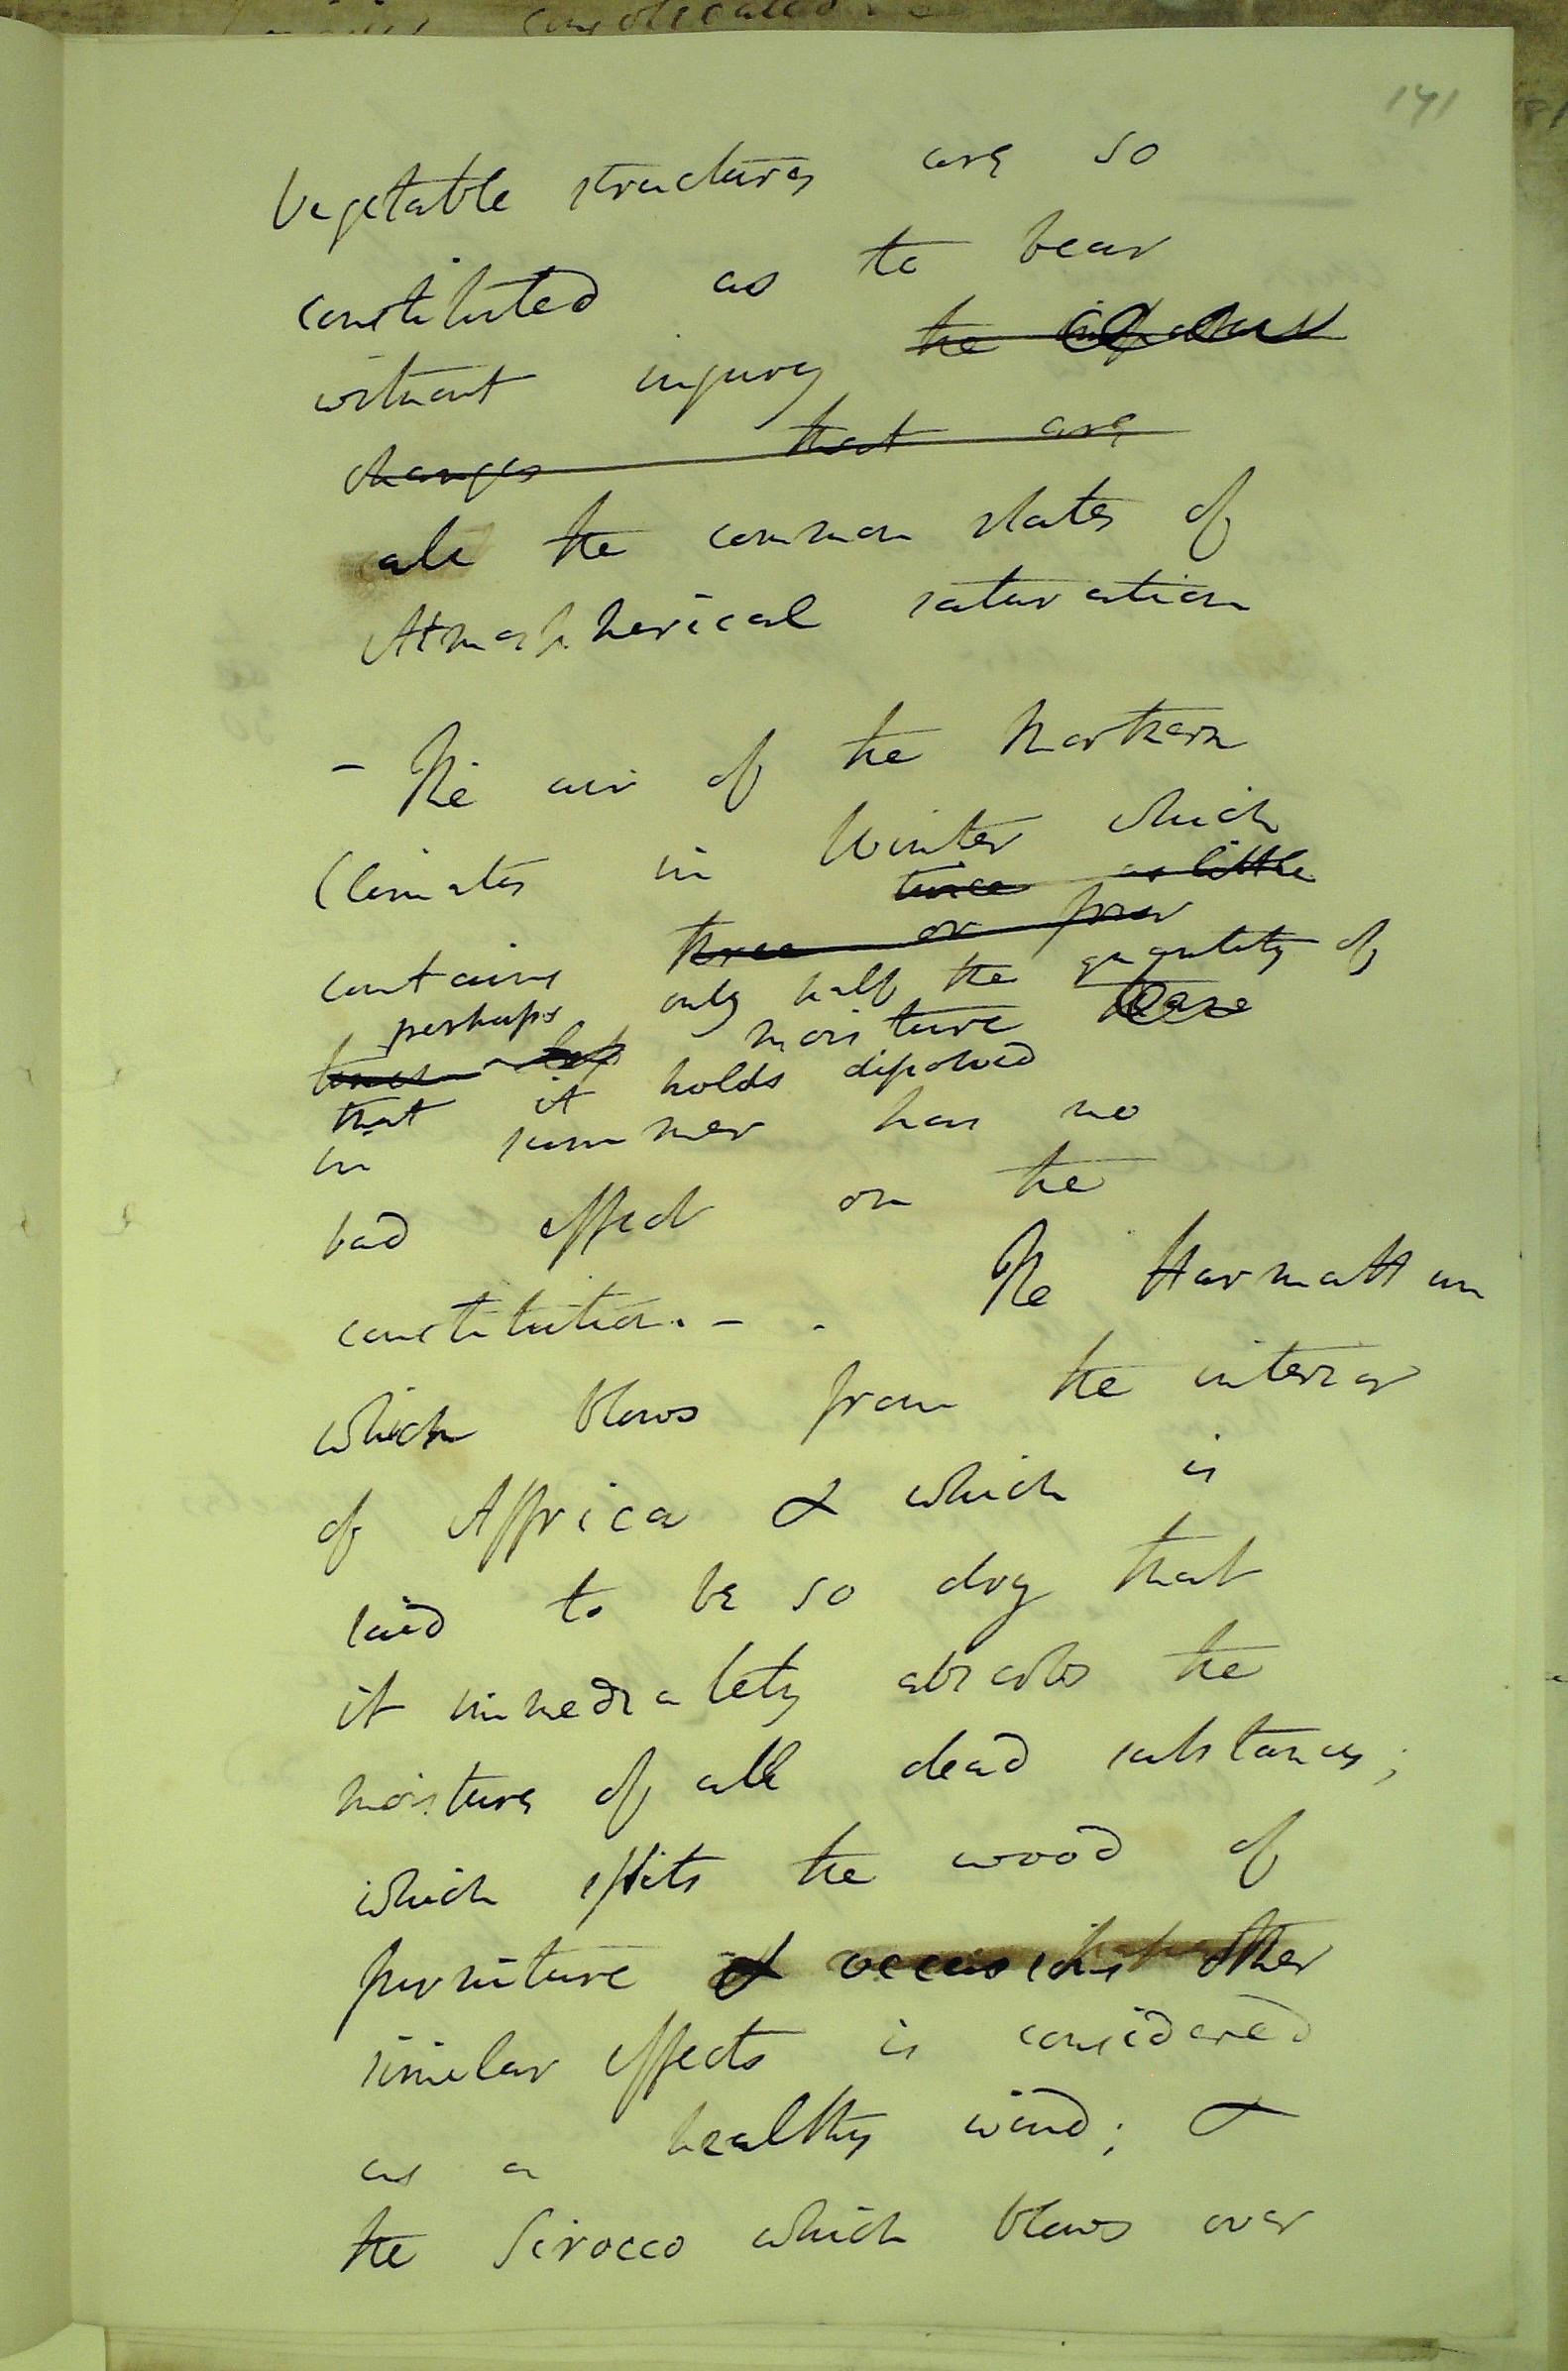 141
Vegetable structures are so
constituted as to bear
without injury the
changes that are
all the common states of
Atmospherical saturation
- The air of the Northern
Climates in Winter which
twice as little
contains three or four
perhaps only half the quantity of
times less moisture
that it holds dissolved
in summer has no
bad effect on the
constitution. - . The Harmattan
which blows from the interior
of Affrica & which is
said to be so dry that
it immediately absorbs the
moisture of all dead substances;
which splits the wood of
furniture & occasions other
similar effects is considered
as a healthy wind; &
the Sirocco which blows over